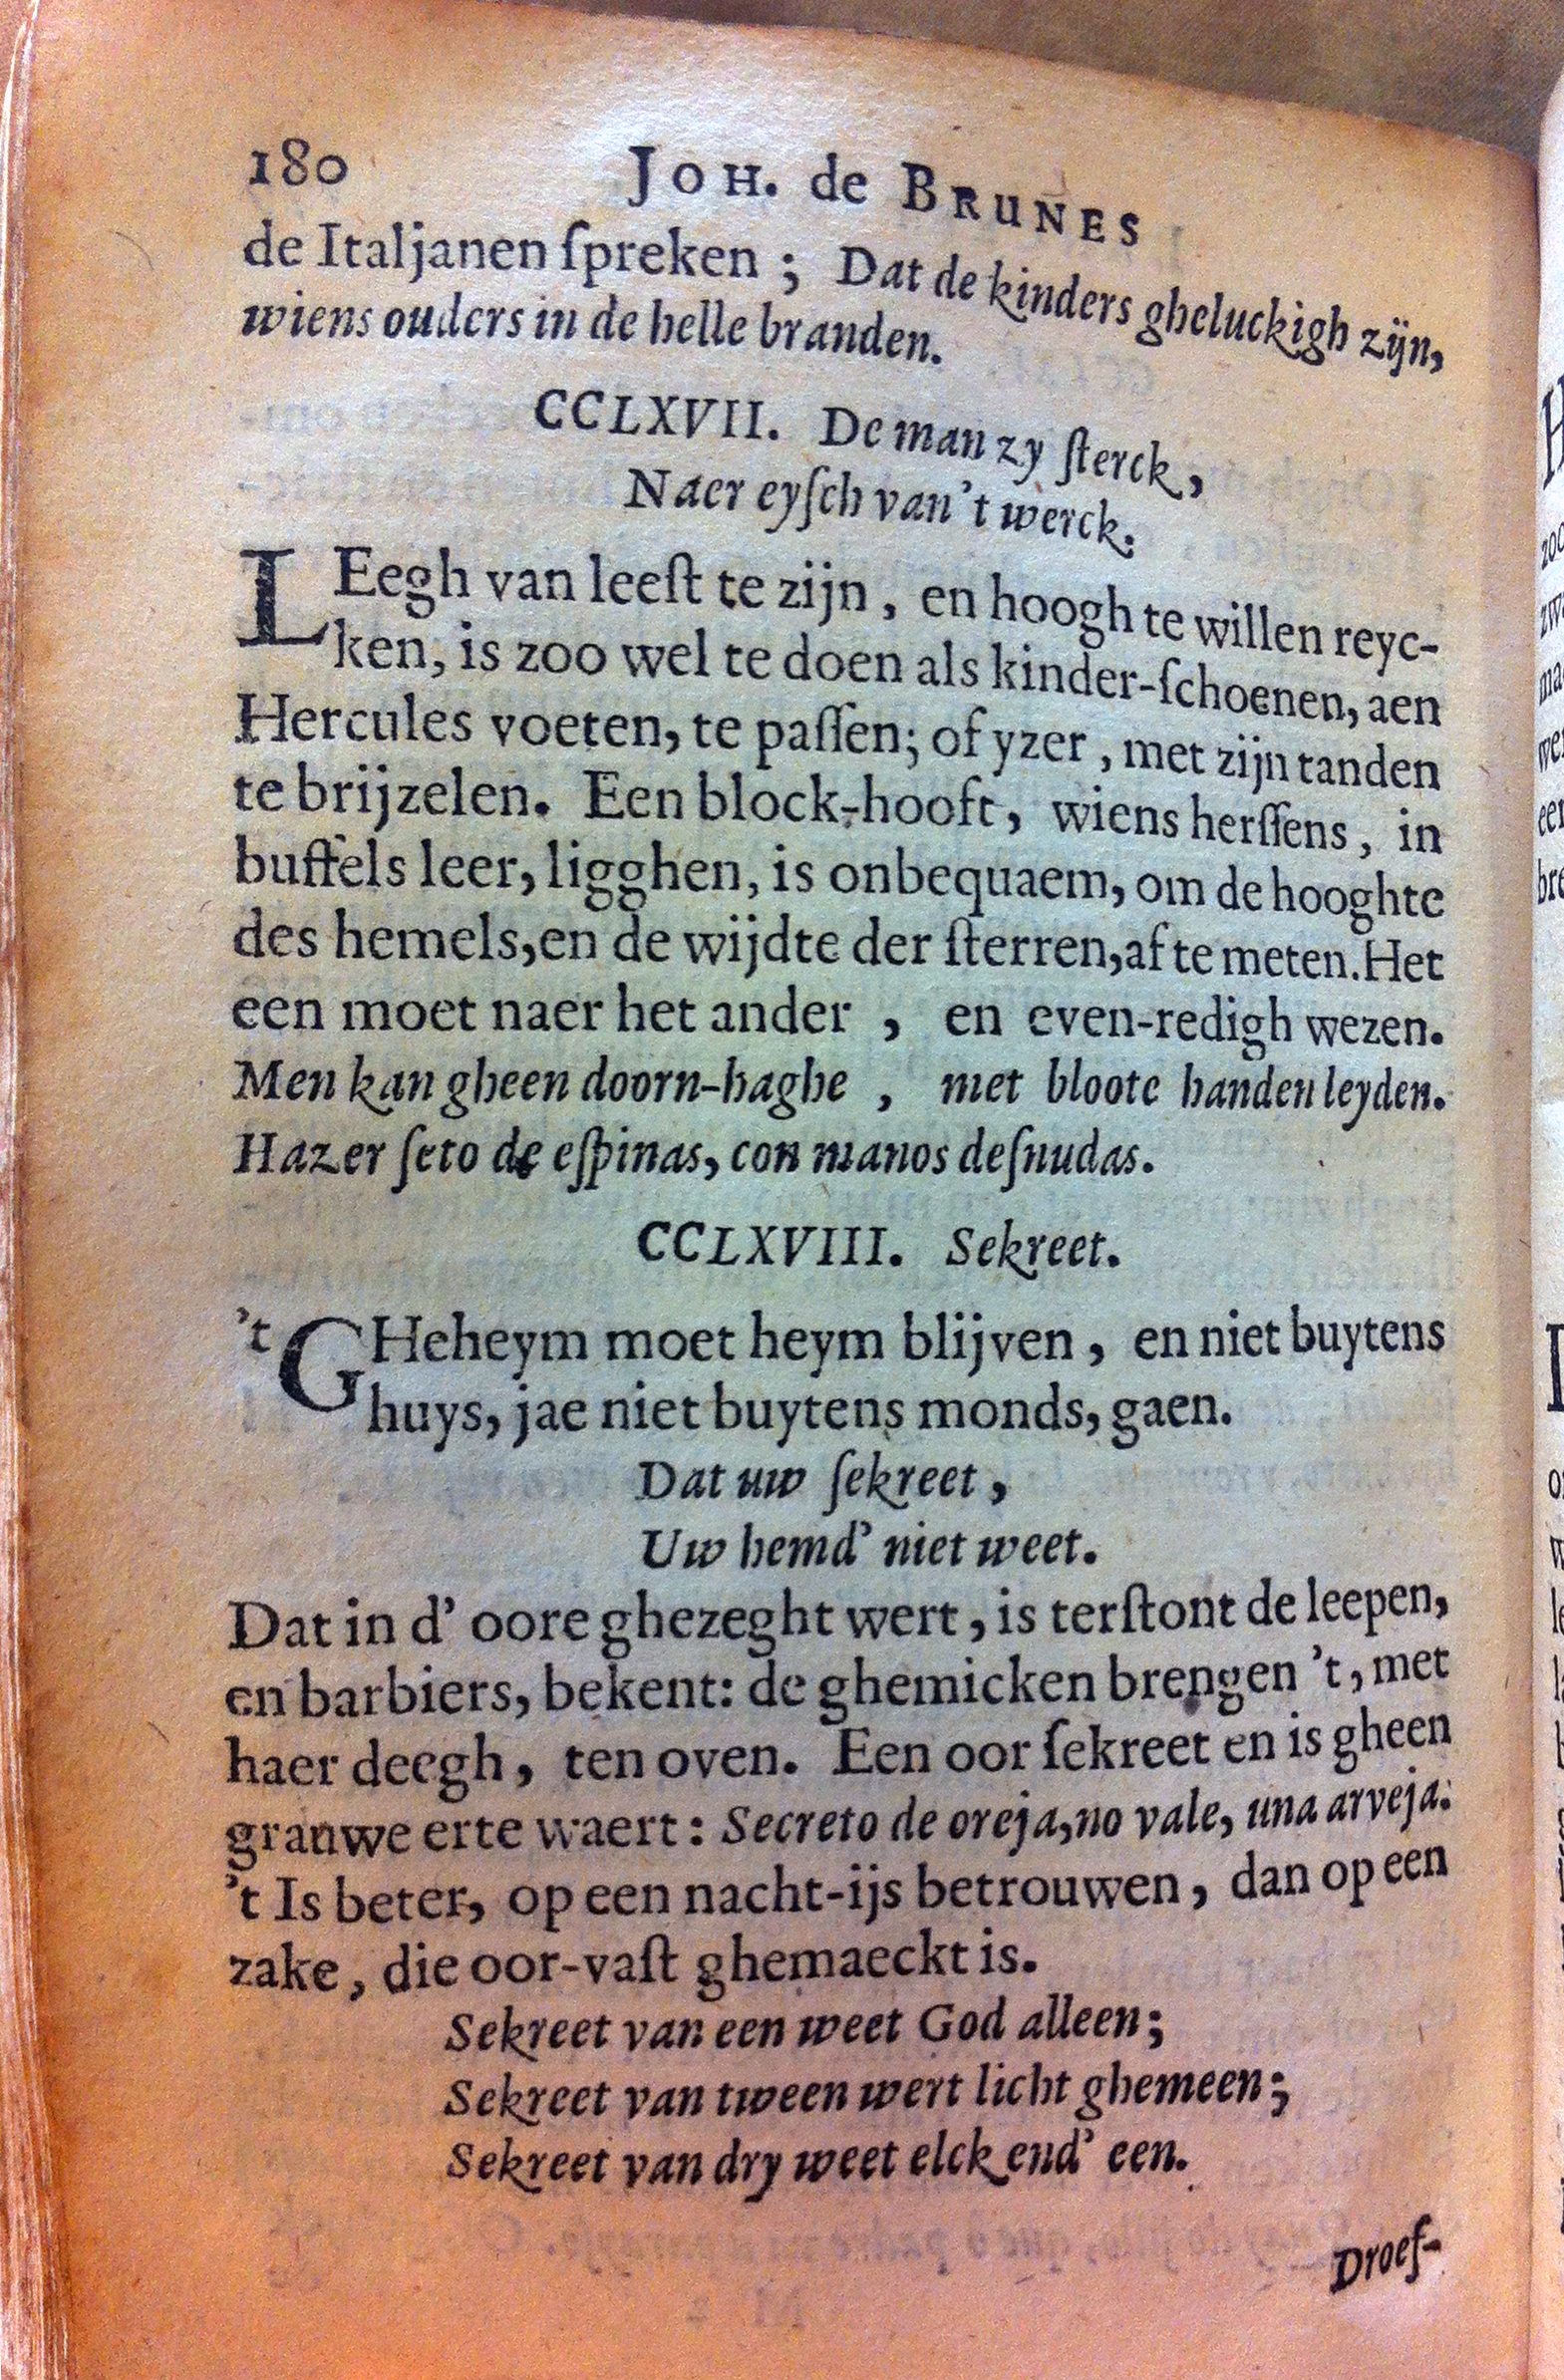 180 JOH. de BRUNES
de Italjanen ſpreken ; Dat de kinders gheluckigh zijn,
wiens ouders in de helle branden.
CCLXVII. De man zy ſterck,
Naer eyſch van 't werck.
LEegh van leeſt te zijn , en hoogh te willen reyc-
ken, is zoo wel te doen als kinder-ſchoenen, aen
Hercules voeten, te paſſen; of yzer , met zijn tanden
te brijzelen. Een block-hooft, wiens herſſens , in
buffels leer, ligghen, is onbequaem, om de hooghte
des hemels,en de wijdte der ſterren,af te meten.Het
een moet naer het ander , en even-redigh wezen.
Men kan gheen doorn-haghe , met bloote handen leyden.
Hazer ſeto de eſpinas, con manos deſnudas.
CCLXVIII. Sekreet.
't GHeheym moet heym blijven , en niet buytens
huys, jae niet buytens monds, gaen.
Dat uw ſekreet ,
Uw hemd' niet weet.
Dat in d' oore ghezeght wert , is terſtont de leepen,
en barbiers, bekent: de ghemicken brengen 't , met
haer deegh , ten oven. Een oor ſekreet en is gheen
granwe erte waert : Secreto de oreja,no vale, una arveja.
't Is beter, op een nacht-ijs betrouwen , dan op een
zake , die oor-vaſt ghemaeckt is.
Sekreet van een weet God alleen;
Sekreet van tween wert licht ghemeen;
Sekreet van dry weet elck end' een.
Droef-